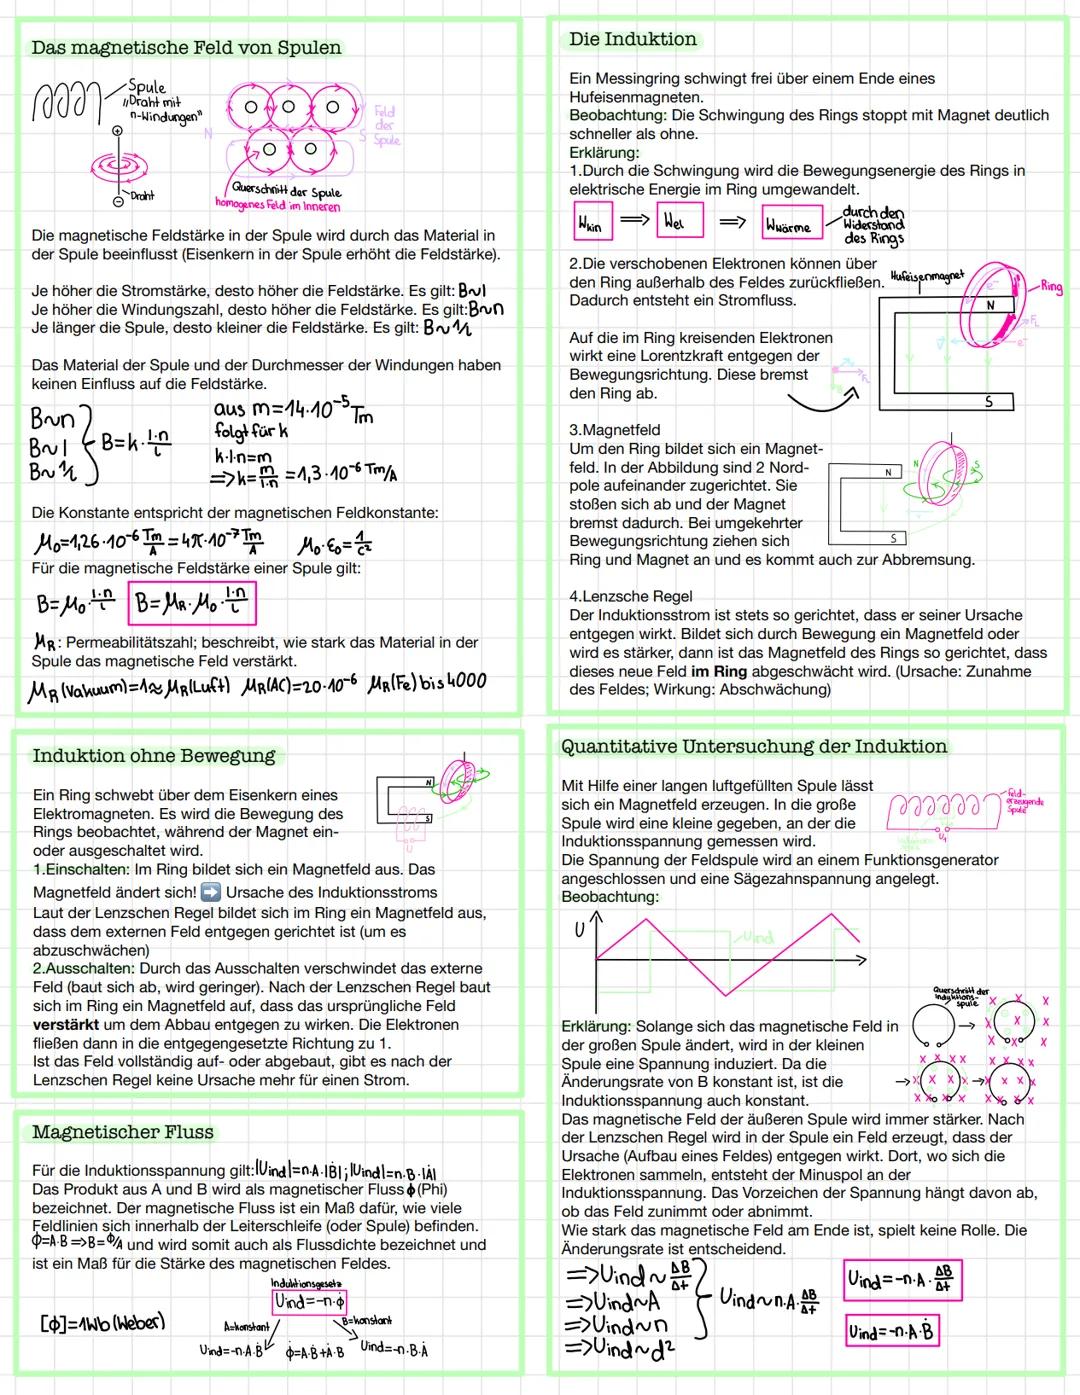 Das magnetische Feld von Spulen
Spule
"Draht mit
n-Windungen"
Draht
N
S
Feld
der
Spule
Querschnitt der Spule
homogenes Feld im Inneren
Die magnetische Feldstärke in der Spule wird durch das Material in
der Spule beeinflusst (Eisenkern in der Spule erhöht die Feldstärke).
Je höher die Stromstärke, desto höher die Feldstärke. Es gilt: B~I
Je höher die Windungszahl, desto höher die Feldstärke. Es gilt: B~n
Je länger die Spule, desto kleiner die Feldstärke. Es gilt: B~1/l
Das Material der Spule und der Durchmesser der Windungen haben
keinen Einfluss auf die Feldstärke.
B~n
B~I
B~1/l
B=k·I·n/l
aus m=14·10⁻⁵Tm
folgt für k
k·I·n=m
=>k=m/I·n=1,3·10⁻⁶ Tm/A
Die Konstante entspricht der magnetischen Feldkonstante:
μ₀=1,26·10⁻⁶ Tm/A=4π·10⁻⁷ Tm/A μ₀·ε₀=1/c²
Für die magnetische Feldstärke einer Spule gilt:
B=μ₀·I·n/l B=μR·μ₀·I·n/l
μR: Permeabilitätszahl; beschreibt, wie stark das Material in der
Spule das magnetische Feld verstärkt.
μR(Vakuum)=1≈μR(Luft) μR(AC)=20·10⁻⁶ μR(Fe) bis 4000
Die Induktion
Ein Messingring schwingt frei über einem Ende eines
Hufeisenmagneten.
Beobachtung: Die Schwingung des Rings stoppt mit Magnet deutlich
schneller als ohne.
Erklärung:
1.Durch die Schwingung wird die Bewegungsenergie des Rings in
elektrische Energie im Ring umgewandelt.
Wkin => Wel => Wwärme
durch den
Widerstand
des Rings
2.Die verschobenen Elektronen können über
den Ring außerhalb des Feldes zurückfließen.
Dadurch entsteht ein Stromfluss.
Hufeisenmagnet
Ring
e⁻
N
FL
e⁻
S
Auf die im Ring kreisenden Elektronen
wirkt eine Lorentzkraft entgegen der
Bewegungsrichtung. Diese bremst
den Ring ab.
3.Magnetfeld
Um den Ring bildet sich ein Magnet-
feld. In der Abbildung sind 2 Nord-
pole aufeinander zugerichtet. Sie
stoßen sich ab und der Magnet
bremst dadurch. Bei umgekehrter
Bewegungsrichtung ziehen sich
Ring und Magnet an und es kommt auch zur Abbremsung.
N
N
S
S
4.Lenzsche Regel
Der Induktionsstrom ist stets so gerichtet, dass er seiner Ursache
entgegen wirkt. Bildet sich durch Bewegung ein Magnetfeld oder
wird es stärker, dann ist das Magnetfeld des Rings so gerichtet, dass
dieses neue Feld im Ring abgeschwächt wird. (Ursache: Zunahme
des Feldes; Wirkung: Abschwächung)
Induktion ohne Bewegung
N
S
U
Ein Ring schwebt über dem Eisenkern eines
Elektromagneten. Es wird die Bewegung des
Rings beobachtet, während der Magnet ein-
oder ausgeschaltet wird.
1.Einschalten: Im Ring bildet sich ein Magnetfeld aus. Das
Magnetfeld ändert sich! ➡ Ursache des Induktionsstroms
Laut der Lenzschen Regel bildet sich im Ring ein Magnetfeld aus,
dass dem externen Feld entgegen gerichtet ist (um es
abzuschwächen)
2.Ausschalten: Durch das Ausschalten verschwindet das externe
Feld (baut sich ab, wird geringer). Nach der Lenzschen Regel baut
sich im Ring ein Magnetfeld auf, dass das ursprüngliche Feld
verstärkt um dem Abbau entgegen zu wirken. Die Elektronen
fließen dann in die entgegengesetzte Richtung zu 1.
Ist das Feld vollständig auf- oder abgebaut, gibt es nach der
Lenzschen Regel keine Ursache mehr für einen Strom.
Magnetischer Fluss
Für die Induktionsspannung gilt: |Uind|=n·A·|Ḃ|; |Uind|=n·B·|Ȧ|
Das Produkt aus A und B wird als magnetischer Fluss ϕ (Phi)
bezeichnet. Der magnetische Fluss ist ein Maß dafür, wie viele
Feldlinien sich innerhalb der Leiterschleife (oder Spule) befinden.
ϕ=A·B =>B=ϕ/A und wird somit auch als Flussdichte bezeichnet und
ist ein Maß für die Stärke des magnetischen Feldes.
Induktionsgesetz
Uind=-n·ϕ̇
[ϕ]=1Wb (Weber)
A=konstant
B=konstant
Uind=-n·A·Ḃ ϕ̇=A·Ḃ+Ȧ·B Uind=-n·B·Ȧ
Quantitative Untersuchung der Induktion
Mit Hilfe einer langen luftgefüllten Spule lässt
sich ein Magnetfeld erzeugen. In die große
Spule wird eine kleine gegeben, an der die
Induktionsspannung gemessen wird.
Die Spannung der Feldspule wird an einem Funktionsgenerator
angeschlossen und eine Sägezahnspannung angelegt.
feld-
erzeugende
Spule
U₁
Beobachtung:
U
Uind
Querschnitt der
Induktions-
spule
Erklärung: Solange sich das magnetische Feld in
der großen Spule ändert, wird in der kleinen
Spule eine Spannung induziert. Da die
Änderungsrate von B konstant ist, ist die
Induktionsspannung auch konstant.
Das magnetische Feld der äußeren Spule wird immer stärker. Nach
der Lenzschen Regel wird in der Spule ein Feld erzeugt, dass der
Ursache (Aufbau eines Feldes) entgegen wirkt. Dort, wo sich die
Elektronen sammeln, entsteht der Minuspol an der
Induktionsspannung. Das Vorzeichen der Spannung hängt davon ab,
ob das Feld zunimmt oder abnimmt.
Wie stark das magnetische Feld am Ende ist, spielt keine Rolle. Die
Änderungsrate ist entscheidend.
=>Uind~ΔB/Δt
=>Uind~A
=>Uind~n
=>Uind~d²
Uind~n·A·ΔB/Δt
Uind=-n·A·ΔB/Δt
Uind=-n·A·Ḃ